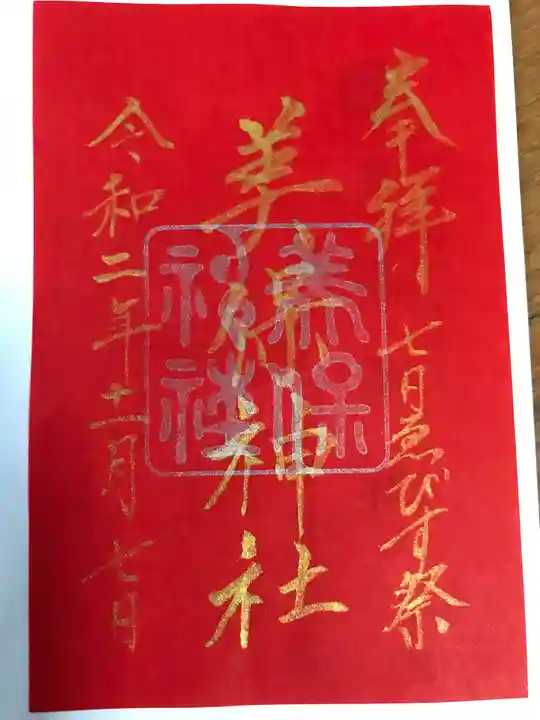 奉拝 七日ゑびす祭
美保神社
美保神社
令和二年十二月七日